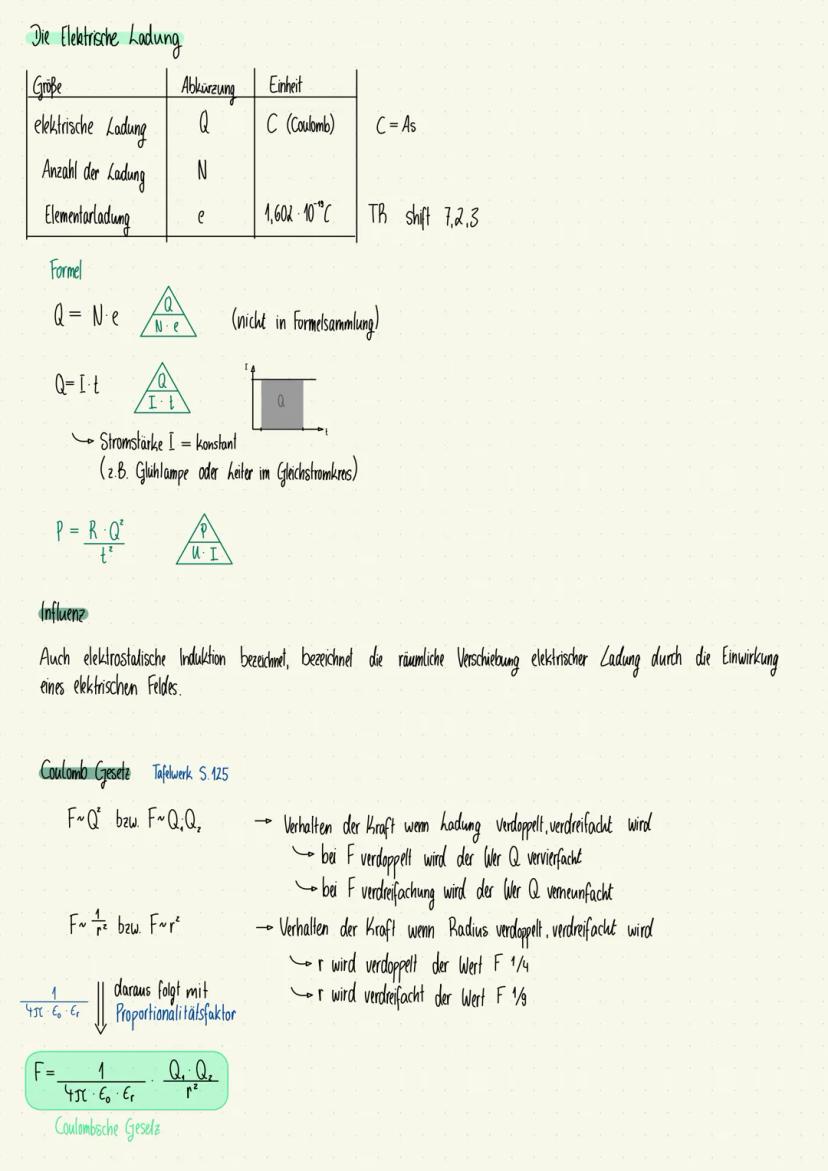 Die Elektrische Ladung
Größe Abkürzung Einheit
elektrische Ladung Q C (Coulomb) C = As
Anzahl der Ladung N
Elementarladung e 1,602 · 10⁻¹⁹ C TR shift 7,2,3
Formel
Q = N · e Q N · e (nicht in Formelsammlung)
Q = I · t Q I · t I Q t
Stromstärke I = konstant
(z.B. Glühlampe oder Leiter im Gleichstromkreis)
P = R · Q² / t² P U · I
Influenz
Auch elektrostatische Induktion bezeichnet, bezeichnet die räumliche Verschiebung elektrischer Ladung durch die Einwirkung
eines elektrischen Feldes.
Coulomb Gesetz Tafelwerk S. 125
F ~ Q² bzw. F ~ Q₁Q₂ → Verhalten der Kraft wenn Ladung verdoppelt, verdreifacht wird
bei F verdoppelt wird der Wer Q vervierfacht
bei F verdreifachung wird der Wer Q verneunfacht
F ~ 1/r² bzw. F ~ r² → Verhalten der Kraft wenn Radius verdoppelt, verdreifacht wird
r wird verdoppelt der Wert F 1/4
r wird verdreifacht der Wert F 1/9
1 / 4π · ε₀ · εᵣ daraus folgt mit
Proportionalitätsfaktor
F = 1 / 4π · ε₀ · εᵣ · Q₁ · Q₂ / r²
Coulombsche Gesetz